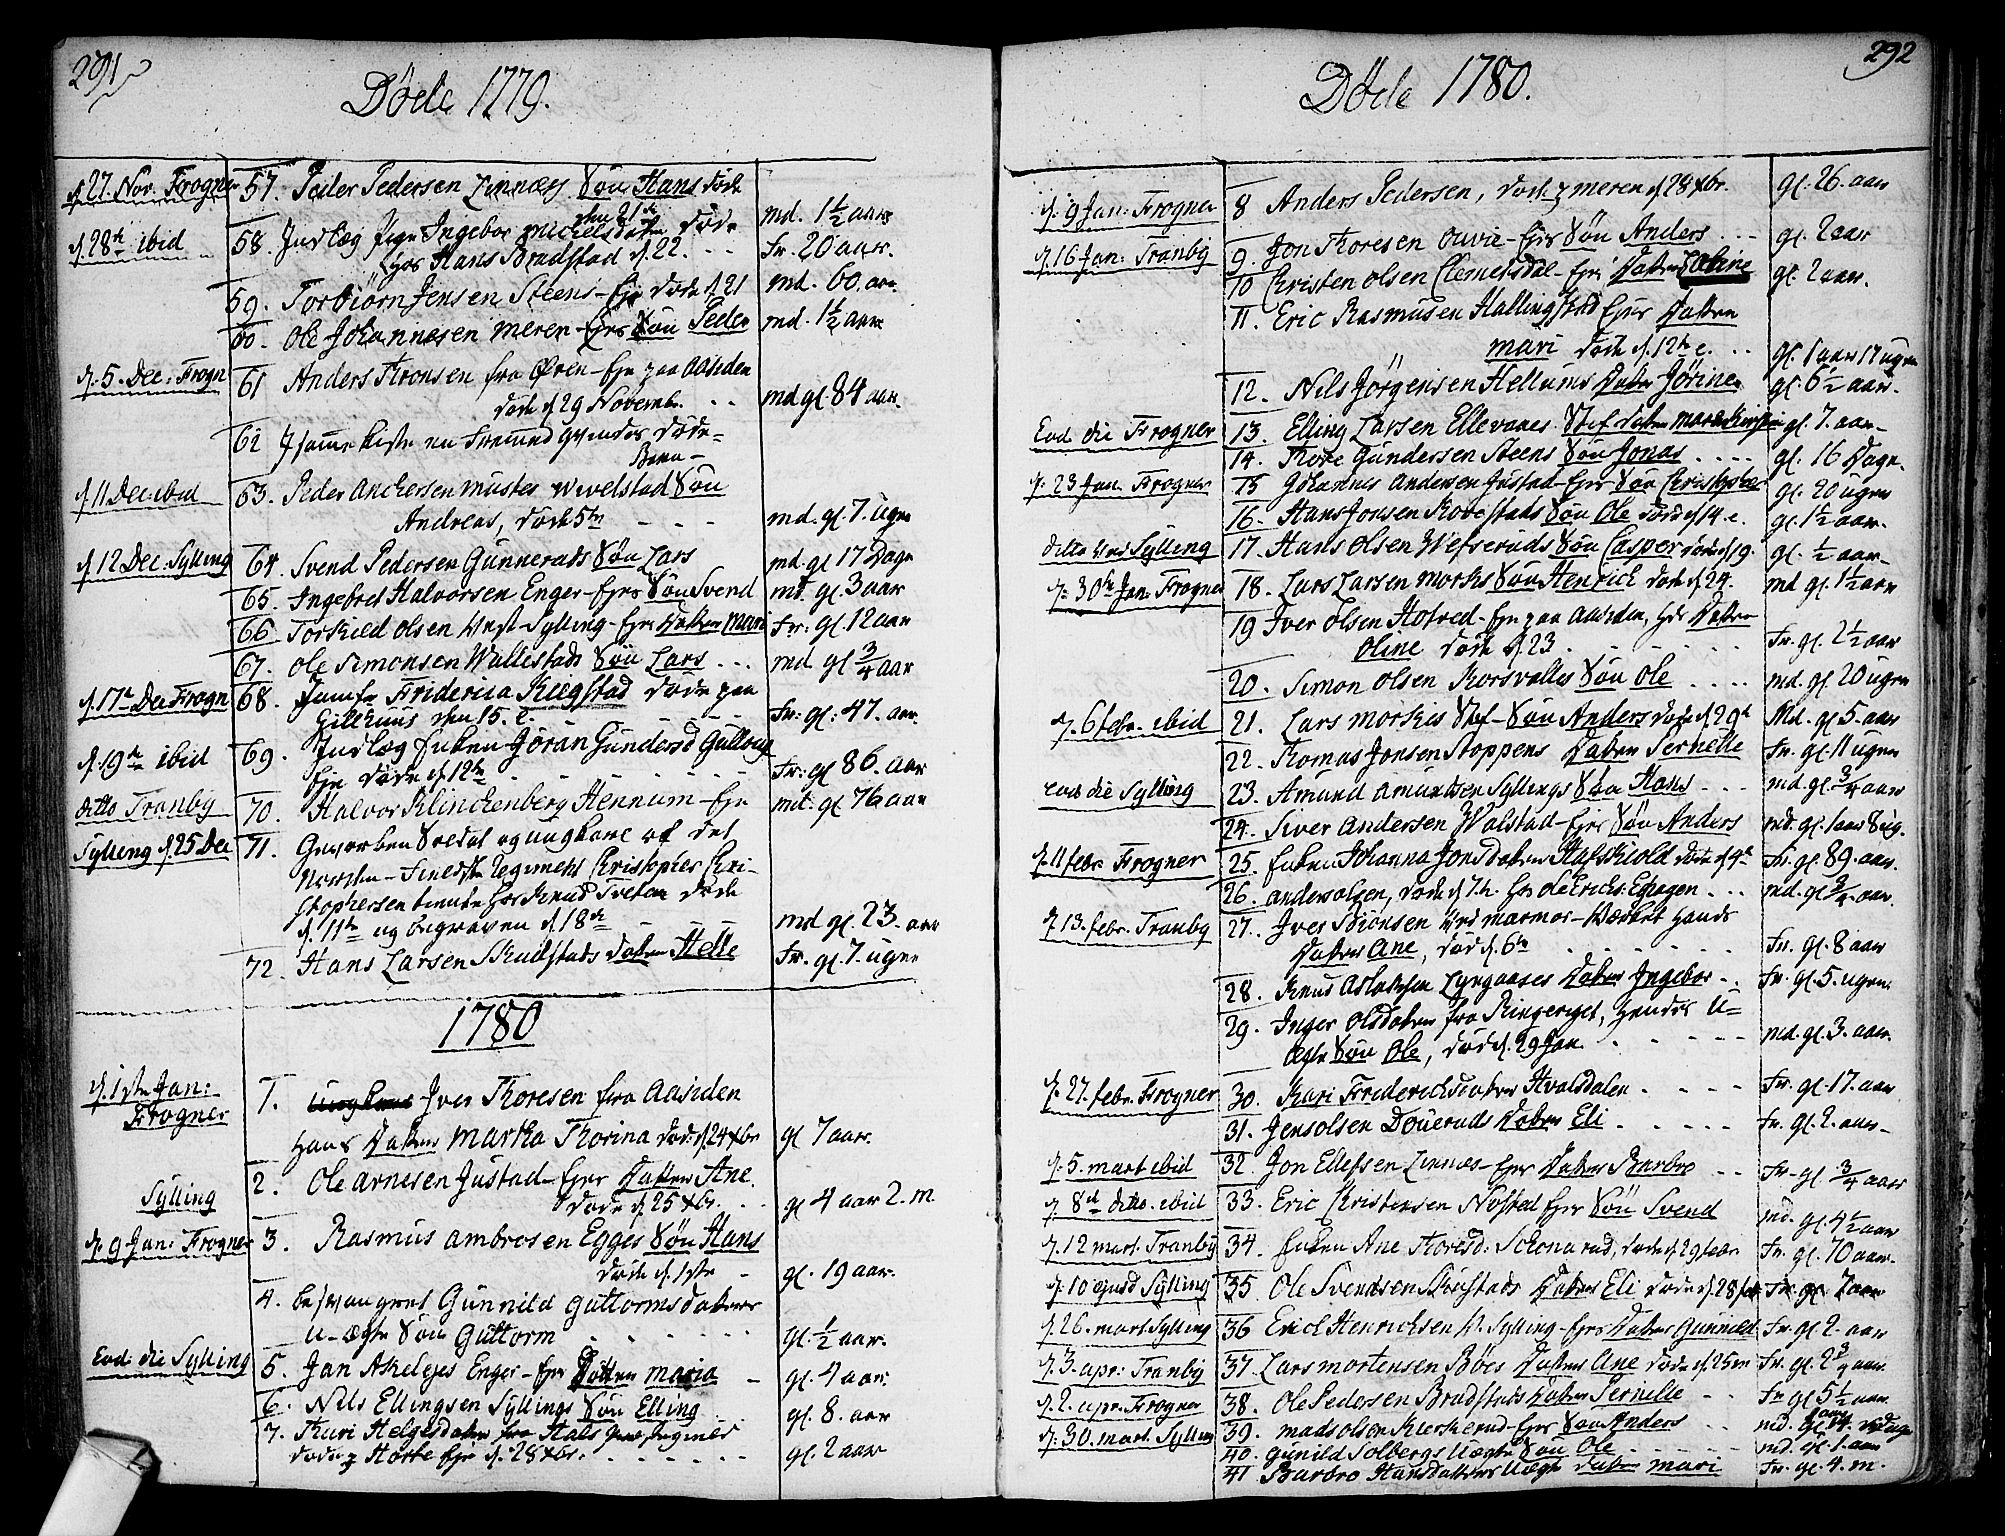 291
Døde 1779.
d. 27. Nov. Frogner 57. Peder Pedersen Linnæs Søn Hans døde md. 1 1/2 aar
d. 28de ibid 58. Indlæg Pige Ingebor Michelsdatter døde
den 21de
hos Hans Bradstad d. 22. fr. 20 aar.
59. Torbiørn Jensen Steens-Eje døde d. 21 md. 60. aar
60. Ole Johannesen Meren-Ejes Søn Peder md. 1 1/2 aar
d. 5. Dec: Frogn 61 Anders Thronsen fra Øren-Eje paa Aasiden
døde d. 29 Novemb. md gl. 84 aar.
62 J samme kiste en Fremmed qvindes døde-
Barn-
d. 11 Dec: ibid 63. Peder Anchersen Mustes Wivelstad Søn
Andreas, døde 5te md. gl. 7. ugr
d. 12 Dec. Sylling 64. Svend Pedersen Gunneruds Søn Lars md. gl 17 Dage
65. Ingebret Halvorsen Enger-Ejes Søn Svend md. gl 3 aar
66 Torkild Olsen Vest-Sylling-Ejes Datter Mari fr: gl. 12 aar
67. Ole Simonsen Wallestads Søn Lars md gl 3/4 aar
d. 17de Dec Frogn 68. Jomfr Friderica Kiegstad døde paa
Gilhuus den 15. e. fr: gl: 47. aar.
d. 19de ibid 69. Indlæg Enken Jøran Gundersd Gullaug
Eje døde d. 12te fr: gl 86. aar
ditto Tranby 70. Halvor Klinckenberg Hennum-Eje md: gl 76 aar
Sylling d. 25 Dec 71. Gevorben Soldat og ungkarl af det
Norden-Fieldske Regiment Christopher Chri-
stophersen tiente hos Knud Tveten døde
d. 11te og begraven d. 18de md gl. 23. aar
72. Hans Larsen Skudstads Datter Helle fr. gl. 7. ugr
1780
d. 1ste Jan: 1. Iver Thoresen fra Aasiden
Frogner hans Datter Martha Thorina død d. 24 xbr gl 7 aar.
2. Ole Arnesen Justad-Ejes Datter Ane.
Sylling døde d. 25 xbr. gl 4 aar 2. m
d. 9 Jan: Frogner 3. Rasmus Ambrosen Egges Søn Hans
døde d. 1ste gl. 19 aar.
4. besvangret Gunnild Guttormsdatters
U-ægte Søn Guttorm gl. 1/2 aar.
Eod. die Sylling 5. Jan Akelejes Enger-Ejes Datter Maria gl. 4 aar.
6. Nils Ellingsen Syllings Søn Elling gl. 8. aar
7. Thuri Helgesdatter fra Hals
døde p. Horre Eje d. 28 xbr. gl. 2 aar
292
Døde 1780.
d. 9 Jan: Frogner 8 Anders Pedersen, døde p. Meren d. 28 xbr. gl. 26. aar
d. 16 Jan: Tranby 9. Jon Thoresen Ouvie-Ejes Søn Anders gl. 2 aar
10 Christen Olsen Clemetsdal-Ejes Datter Oline gl. 2 aar.
11. Eric Rasmusen Hallingstad Ejes Datter
Mari døde d. 12te e. gl. 1 aar 17 ugr
12. Nils Jörgensen Hellums Datter Jörine gl. 6 1/2 aar.
Eod die Frogner 13. Elling Larsen Ellevanes Stef datter Maren gl. 7. aar
14. Thore Gundersen Steens Søn Jonas gl. 16 Dage.
d. 23 Jan. Frogner 15 Johannes Andersen Justad-Ejes Søn Christopher gl. 20 ugr
16. Hans Jonsen Kovestads Søn Ole døde d. 14. e. gl. 1 1/2 aar.
ditto ved Sylling 17. Hans Olsen Wefseruds Søn Casper døde d. 19. gl. 1/2 aar
d. 30te Jan. Frogner 18. Lars Larsen Morks Søn Henrich døde d. 24. md gl. 1 1/2 aar
19 Iver Olsen Hotved-Eje paa Aasiden, hds Datter
Oline døde d. 23 fr. gl. 2 1/2 aar
20. Simon Olsen Korsvolles Søn Ole md. gl. 20 ugr
d. 6 febr. ibid 21. Lars Morkis Stef-Søn Anders døde d. 29de Md. gl. 5. aar
22. Thomas Jonsen Stoppens Datter Pernelle fr. gl. 11 ugr
eod die Sylling 23. Amund Amundsen Syllings Søn Hans md gl. 3/4 aar
24. Siver Andersen Walstad-Ejes Søn Anders md. gl. 1 aar 8 ug.
d. 11 febr Frogner 25. Enken Johanna Jonsdatter Hafskiold døde d. 4de fr. gl. 89. aar.
26. Anders Olsen, døde d. 7de hos Ole Erichs. Eghagen md. gl. 3/4 aar.
d. 13. febr. Tranby 27. Iver Biönsen ved Marmor-Værket hands
Datter Ane, død d. 6te fr. gl. 8 aar
28. Knud Aslaksen Lyngaases Datter Ingebor fr. gl. 5. ugr.
29. Inger Olsdatter fra Ringeriget, hendes U-
ægte Søn Ole, død d. 29 Jan. md. gl. 3. aar.
d. 27. febr. Frogner 30. Kari Friderichsdatter Hvalsdalen fr. gl. 17. aar
31. Jens Olsen Döveruds Datter Eli fr. gl. 2. aar
d. 5. mart ibid 32. Jon Ellefsen Linnæs-Ejes Datter Barbro fr. gl. 3/4 aar
d. 8de ditto. ibid 33. Eric Christensen Nøsted Ejes Søn Svend md. gl. 4 1/2 aar
d. 12 mart. Tranby 34. Enken Ane Thoresd: Schonerud, døde d. 29 febr fr. gl. 70 aar.
d. 10 ejusd Sylling 35 Ole Svendsen Skustads Datter Eli døde d. 28 febr fr. gl. 7 aar
d. 26. mart Sylling 36 Erich Henrichsen V. Sylling-Ejes Datter Gunnild fr. gl. 2. aar
d. 3. apr: Tranby 37. Lars Mortensen Böes Datter Ane døde d. 25 m fr. gl. 2 3/4 aar.
d. 2. apr. Frogner 38. Ole Pedersen Bradstads Datter Pernelle fr gl 5 1/2 aar.
d. 30. mart. Sylling 39. Mads Olsen Kierkerud-Ejes Søn Anders md. gl. 14 dage
40. Gunild Solbergs Uægte Søn Ole md. gl. 1. aar
41 Barbro Hansdatters Uægte Datter Mari fr. gl. 4. m.